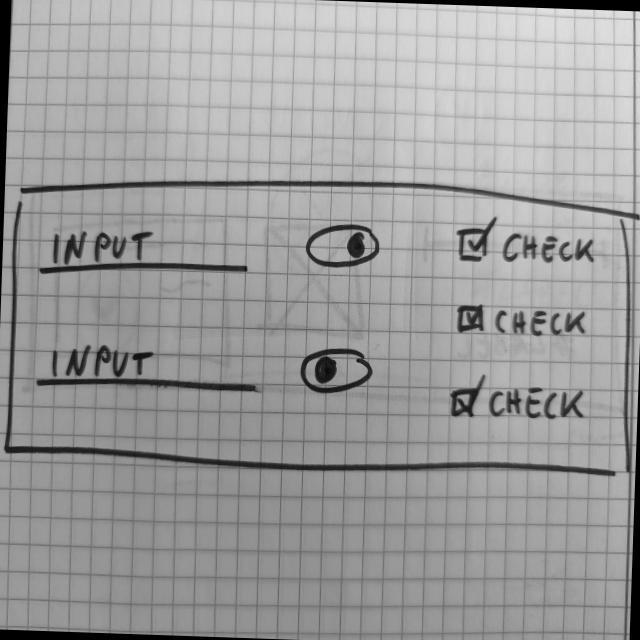 INPUT CHECK
CHECK
INPUT CHECK